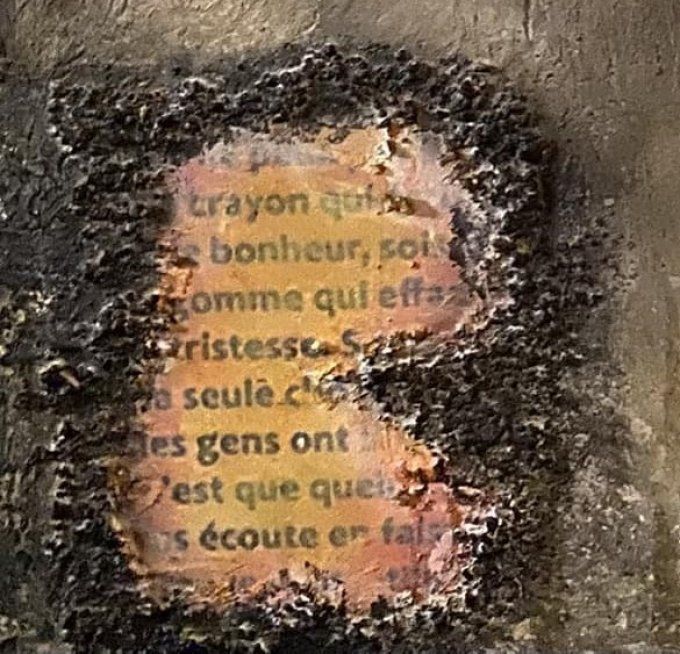 crayon qui
bonheur, sois
gomme qui effa
tristesse. S
a seule c
les gens ont
'est que quel
s écoute en fais